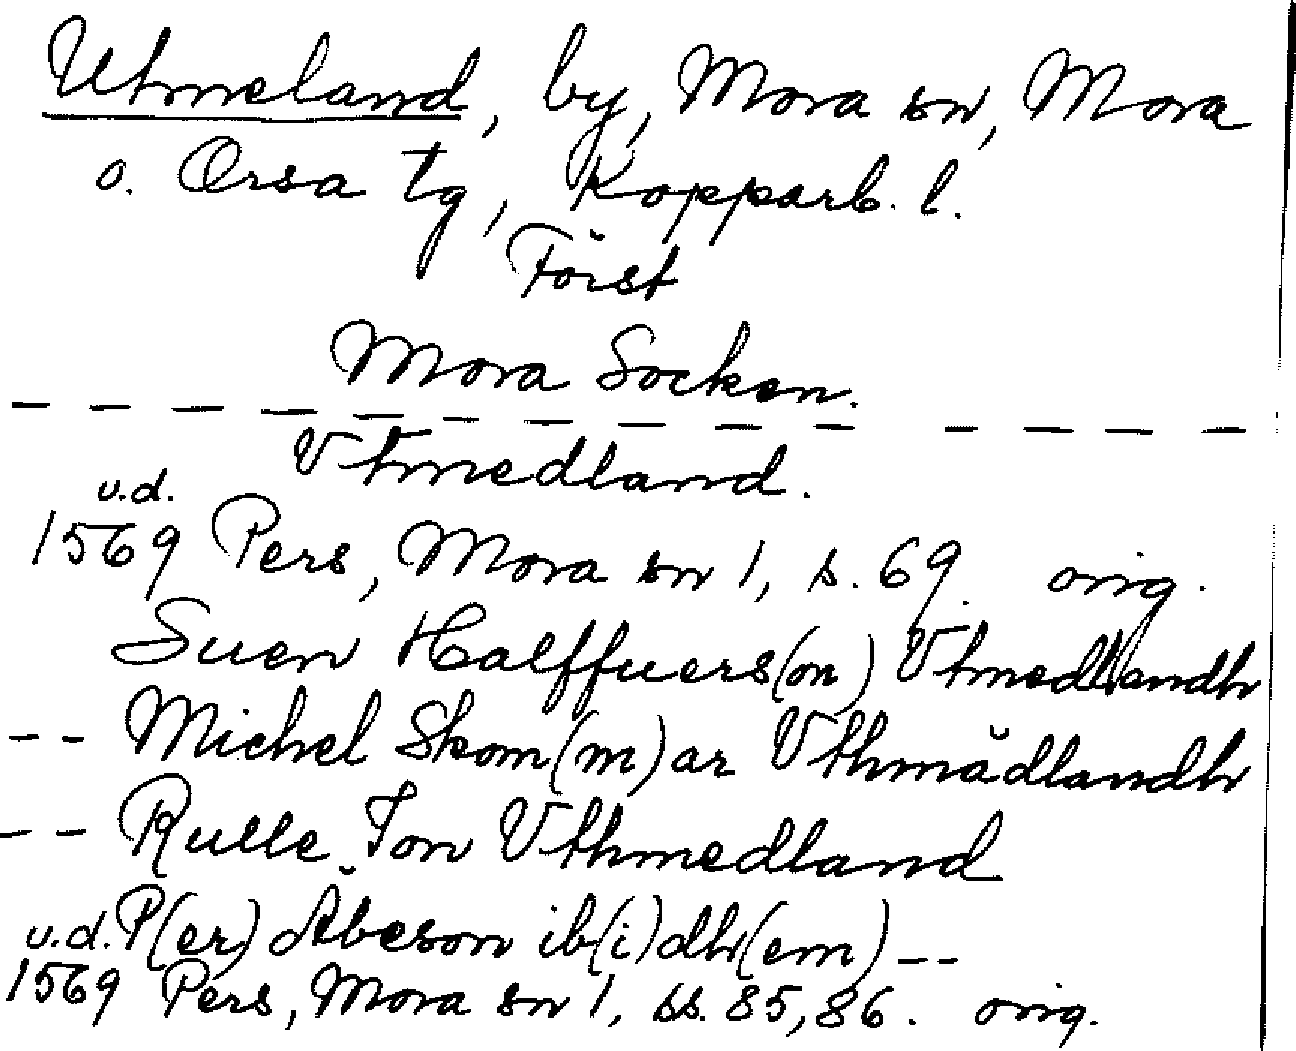 Utmeland, by, Mora sn, Mora
o. Orsa tg, Kopparb. l.
Först
Mora Socken.
– – – – – – – – – – – – – –
Vtmedland.
u.d.
1569 Pers, Mora sn 1, s. 69. orig.
Suen Halffuers(on) Vtmedlandh
-- Michel Skom(m)ar Vthmädlandh
-- Rulle Jon Vthmedland
P(er) Äbeson ib(i)dh(em) --
u.d.
1569 Pers, Mora sn 1, ss. 85, 86. orig.